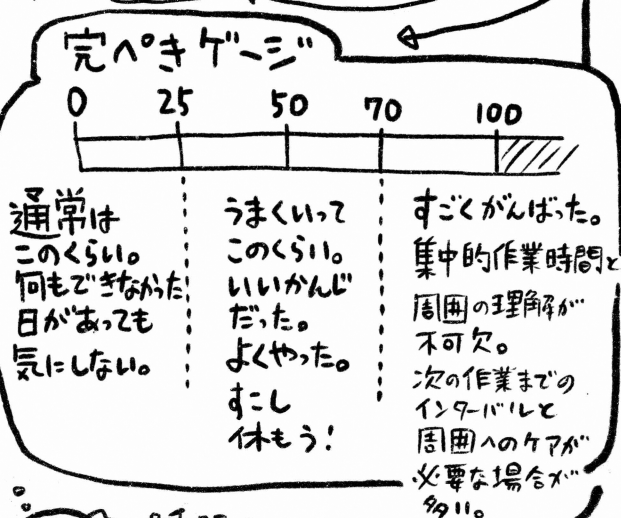 完ぺきゲージ
0 25 50 70 100
通常は
このくらい。
何もできなかった
日があっても
気にしない。
うまくいって
このくらい。
いいかんじ
だった。
よくやった。
すこし
休もう!
すごくがんばった。
集中的作業時間と
周囲の理解が
不可欠。
次の作業までの
インターバルと
周囲へのケアが
必要な場合が
多い。